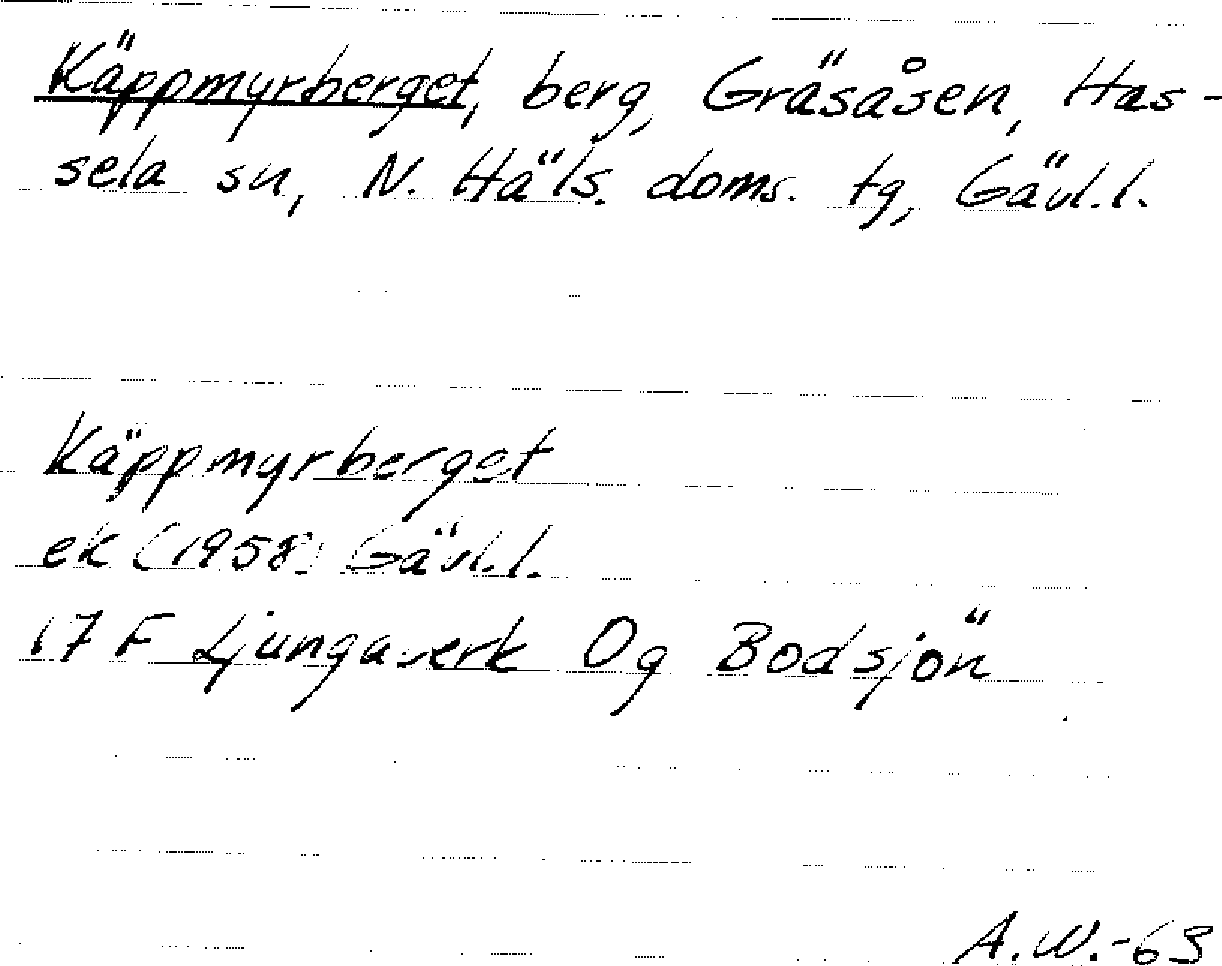 Käppmyrberget, berg, Gräsåsen, Has-
sela sn, N. Häls. doms. tg, Gävl.l.
Käppmyrberget
ek (1958) Gävl.l.
17 F Ljungaverk 0g Bodsjön
A.W.-63